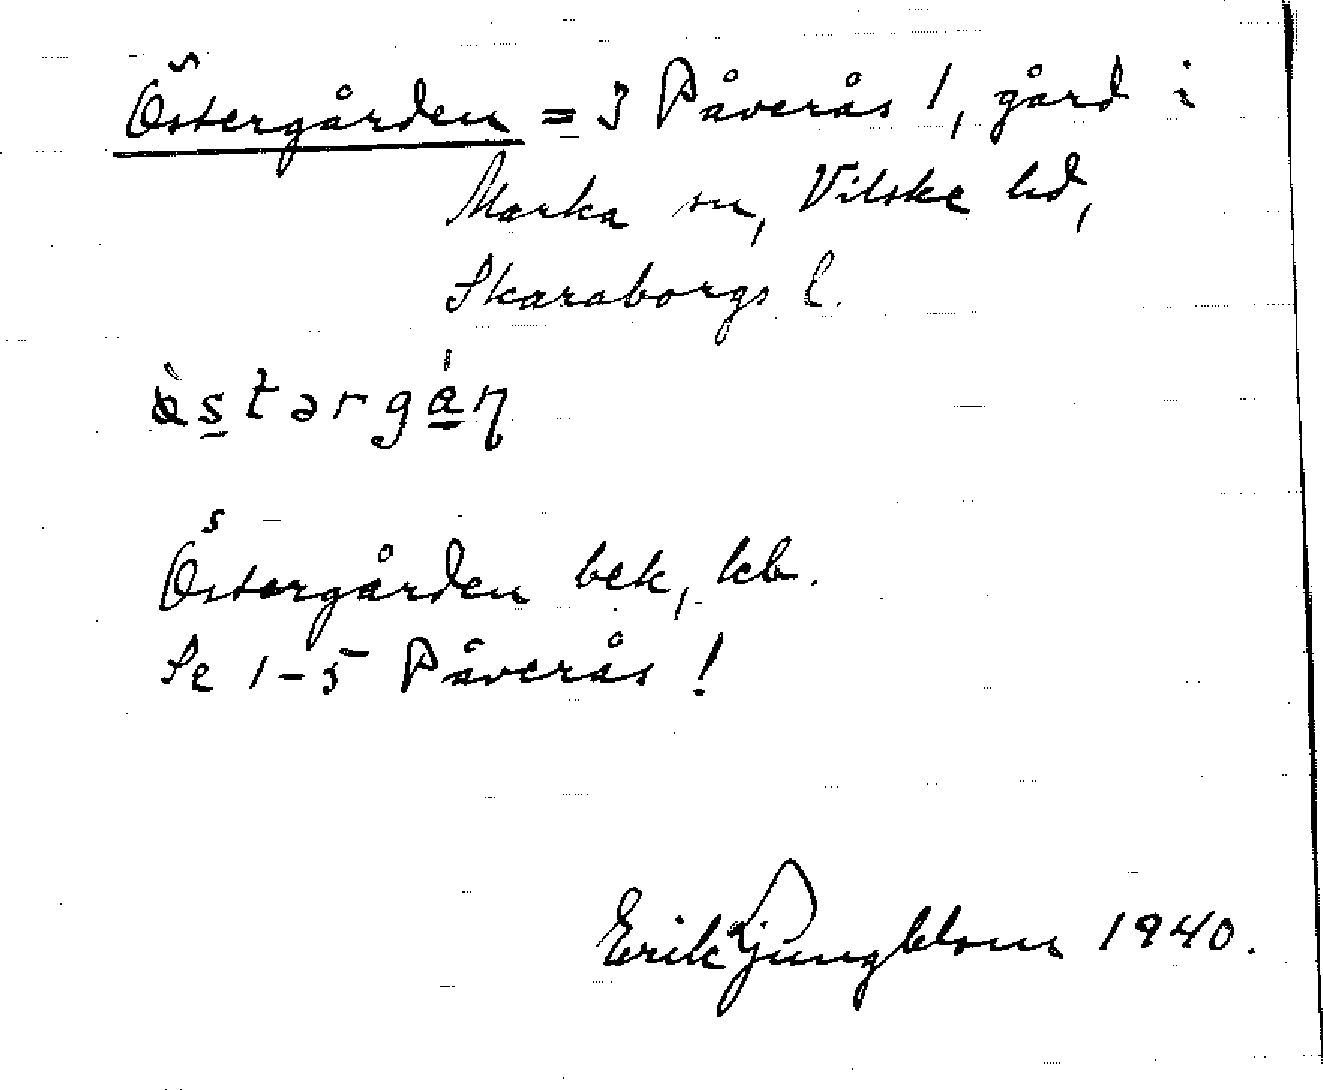 Östergården = 3 Påverås 1, gård i
Marka sn, Vilske hd,
Skaraborgs l.
s
Östergården bek, kb.
Se 1-5 Påverås !
Erik Ljungblom 1940.